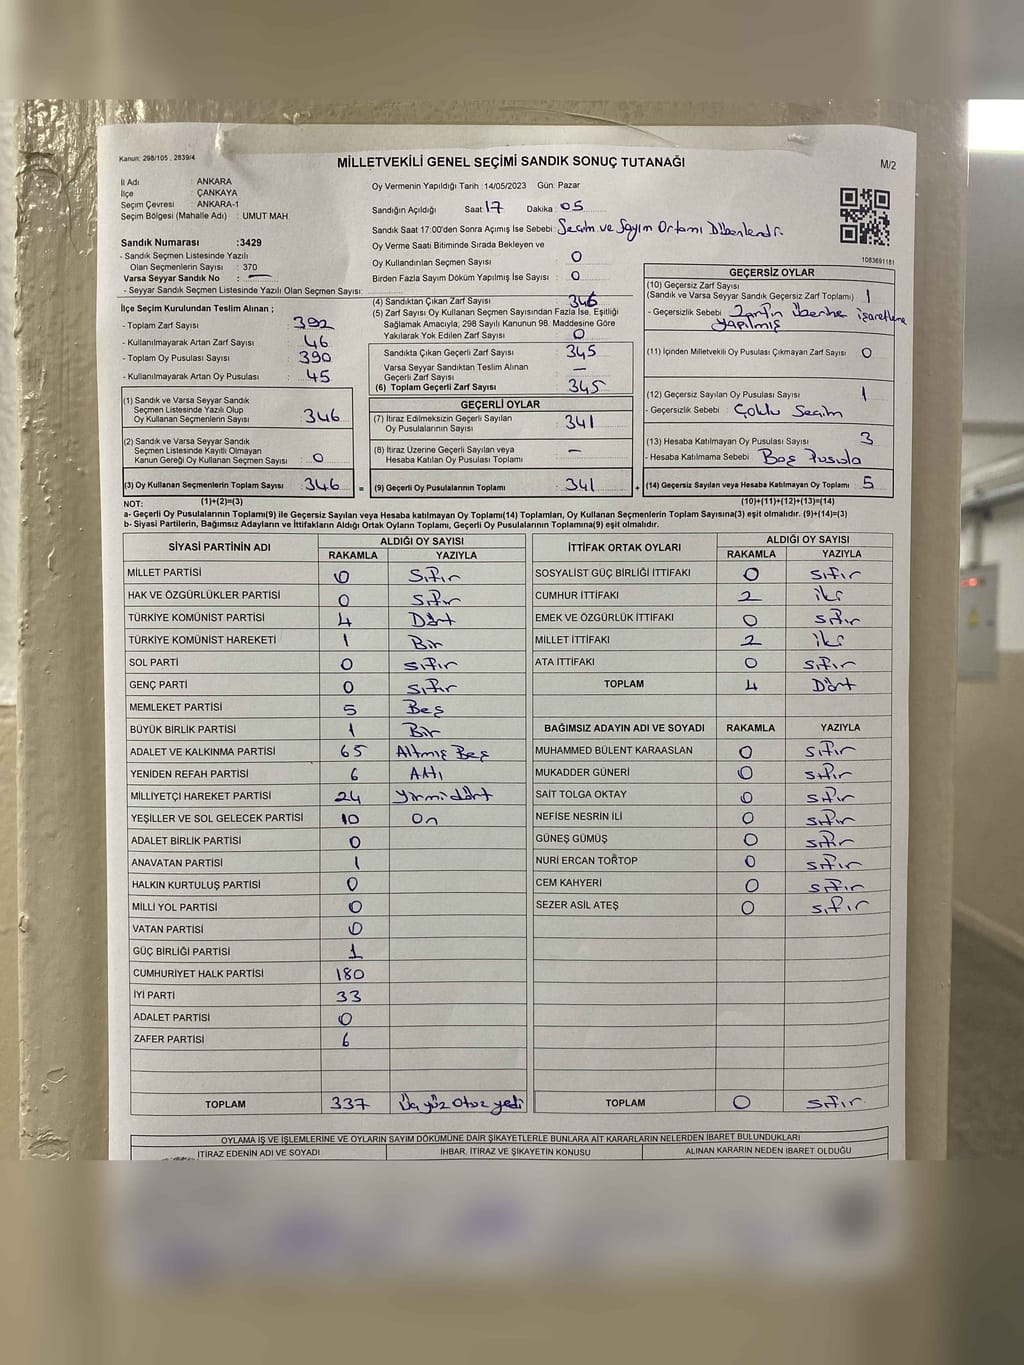 Kanun: 298/105 , 2839/4
MİLLETVEKİLİ GENEL SEÇİMİ SANDIK SONUÇ TUTANAĞI
M/2
İl Adı : ANKARA
İlçe : ÇANKAYA
Seçim Çevresi : ANKARA-1
Seçim Bölgesi (Mahalle Adı) : UMUT MAH.
Sandık Numarası :3429
- Sandık Seçmen Listesinde Yazılı
Olan Seçmenlerin Sayısı : 370
Varsa Seyyar Sandık No : —
- Seyyar Sandık Seçmen Listesinde Yazılı Olan Seçmen Sayısı:
Oy Vermenin Yapıldığı Tarih : 14/05/2023 Gün: Pazar
Sandığın Açıldığı Saat: 17 Dakika : 05
Sandık Saat 17:00'den Sonra Açımış İse Sebebi: Seçim ve Sayım Ortamı Düzenlendi.
Oy Verme Saati Bitiminde Sırada Bekleyen ve
Oy Kullandırılan Seçmen Sayısı : 0
Birden Fazla Sayım Döküm Yapılmış İse Sayısı : 0
1083691181
İlçe Seçim Kurulundan Teslim Alınan ;
- Toplam Zarf Sayısı : 392
- Kullanılmayarak Artan Zarf Sayısı : 46
- Toplam Oy Pusulası Sayısı : 390
- Kullanılmayarak Artan Oy Pusulası : 45
(1) Sandık ve Varsa Seyyar Sandık
Seçmen Listesinde Yazılı Olup
Oy Kullanan Seçmenlerin Sayısı : 346
(2) Sandık ve Varsa Seyyar Sandık
Seçmen Listesinde Kayıtlı Olmayan
Kanun Gereği Oy Kullanan Seçmen Sayısı : 0
(3) Oy Kullanan Seçmenlerin Toplam Sayısı : 346
(4) Sandıktan Çıkan Zarf Sayısı : 346
(5) Zarf Sayısı Oy Kullanan Seçmen Sayısından Fazla İse, Eşitliği
Sağlamak Amacıyla; 298 Sayılı Kanunun 98. Maddesine Göre
Yakılarak Yok Edilen Zarf Sayısı : 0
Sandıkta Çıkan Geçerli Zarf Sayısı : 345
Varsa Seyyar Sandıktan Teslim Alınan
Geçerli Zarf Sayısı : —
(6) Toplam Geçerli Zarf Sayısı : 345
GEÇERLİ OYLAR
(7) İtiraz Edilmeksizin Geçerli Sayılan
Oy Pusulalarının Sayısı : 341
(8) İtiraz Üzerine Geçerli Sayılan veya
Hesaba Katılan Oy Pusulası Toplamı : —
= (9) Geçerli Oy Pusulalarının Toplamı : 341
GEÇERSİZ OYLAR
(10) Geçersiz Zarf Sayısı
(Sandık ve Varsa Seyyar Sandık Geçersiz Zarf Toplamı) : 1
- Geçersizlik Sebebi : Zarfın Üzerine işaretleme
yapılmış
(11) İçinden Milletvekili Oy Pusulası Çıkmayan Zarf Sayısı : 0
(12) Geçersiz Sayılan Oy Pusulası Sayısı : 1
- Geçersizlik Sebebi : Çoklu Seçim
(13) Hesaba Katılmayan Oy Pusulası Sayısı : 3
- Hesaba Katılmama Sebebi : Boş Pusula
+ (14) Geçersiz Sayılan veya Hesaba Katılmayan Oy Toplamı : 5
NOT: (1)+(2)=(3) (10)+(11)+(12)+(13)=(14)
a- Geçerli Oy Pusulalarının Toplamı(9) ile Geçersiz Sayılan veya Hesaba katılmayan Oy Toplamı(14) Toplamları, Oy Kullanan Seçmenlerin Toplam Sayısına(3) eşit olmalıdır. (9)+(14)=(3)
b- Siyasi Partilerin, Bağımsız Adayların ve İttifakların Aldığı Ortak Oyların Toplamı, Geçerli Oy Pusulalarının Toplamına(9) eşit olmalıdır.
SİYASİ PARTİNİN ADI ALDIĞI OY SAYISI
RAKAMLA YAZIYLA
MİLLET PARTİSİ 0 Sıfır
HAK VE ÖZGÜRLÜKLER PARTİSİ 0 Sıfır
TÜRKİYE KOMÜNİST PARTİSİ 4 Dört
TÜRKİYE KOMÜNİST HAREKETİ 1 Bir
SOL PARTİ 0 sıfır
GENÇ PARTİ 0 sıfır
MEMLEKET PARTİSİ 5 Beş
BÜYÜK BİRLİK PARTİSİ 1 Bir
ADALET VE KALKINMA PARTİSİ 65 Altmış Beş
YENİDEN REFAH PARTİSİ 6 Altı
MİLLİYETÇİ HAREKET PARTİSİ 24 Yirmidört
YEŞİLLER VE SOL GELECEK PARTİSİ 10 On
ADALET BİRLİK PARTİSİ 0
ANAVATAN PARTİSİ 1
HALKIN KURTULUŞ PARTİSİ 0
MİLLİ YOL PARTİSİ 0
VATAN PARTİSİ 0
GÜÇ BİRLİĞİ PARTİSİ 1
CUMHURİYET HALK PARTİSİ 180
İYİ PARTİ 33
ADALET PARTİSİ 0
ZAFER PARTİSİ 6
TOPLAM 337 Üç yüz Otuz yedi
İTTİFAK ORTAK OYLARI ALDIĞI OY SAYISI
RAKAMLA YAZIYLA
SOSYALİST GÜÇ BİRLİĞİ İTTİFAKI 0 sıfır
CUMHUR İTTİFAKI 2 iki
EMEK VE ÖZGÜRLÜK İTTİFAKI 0 sıfır
MİLLET İTTİFAKI 2 iki
ATA İTTİFAKI 0 sıfır
TOPLAM 4 Dört
BAĞIMSIZ ADAYIN ADI VE SOYADI RAKAMLA YAZIYLA
MUHAMMED BÜLENT KARAASLAN 0 sıfır
MUKADDER GÜNERİ 0 sıfır
SAİT TOLGA OKTAY 0 sıfır
NEFİSE NESRİN İLİ 0 sıfır
GÜNEŞ GÜMÜŞ 0 sıfır
NURİ ERCAN TORTOP 0 sıfır
CEM KAHYERİ 0 sıfır
SEZER ASİL ATEŞ 0 sıfır
TOPLAM 0 sıfır
OYLAMA İŞ VE İŞLEMLERİNE VE OYLARIN SAYIM DÖKÜMÜNE DAİR ŞİKAYETLERLE BUNLARA AİT KARARLARIN NELERDEN İBARET BULUNDUKLARI
İTİRAZ EDENİN ADI VE SOYADI İHBAR, İTİRAZ VE ŞİKAYETİN KONUSU ALINAN KARARIN NEDEN İBARET OLDUĞU